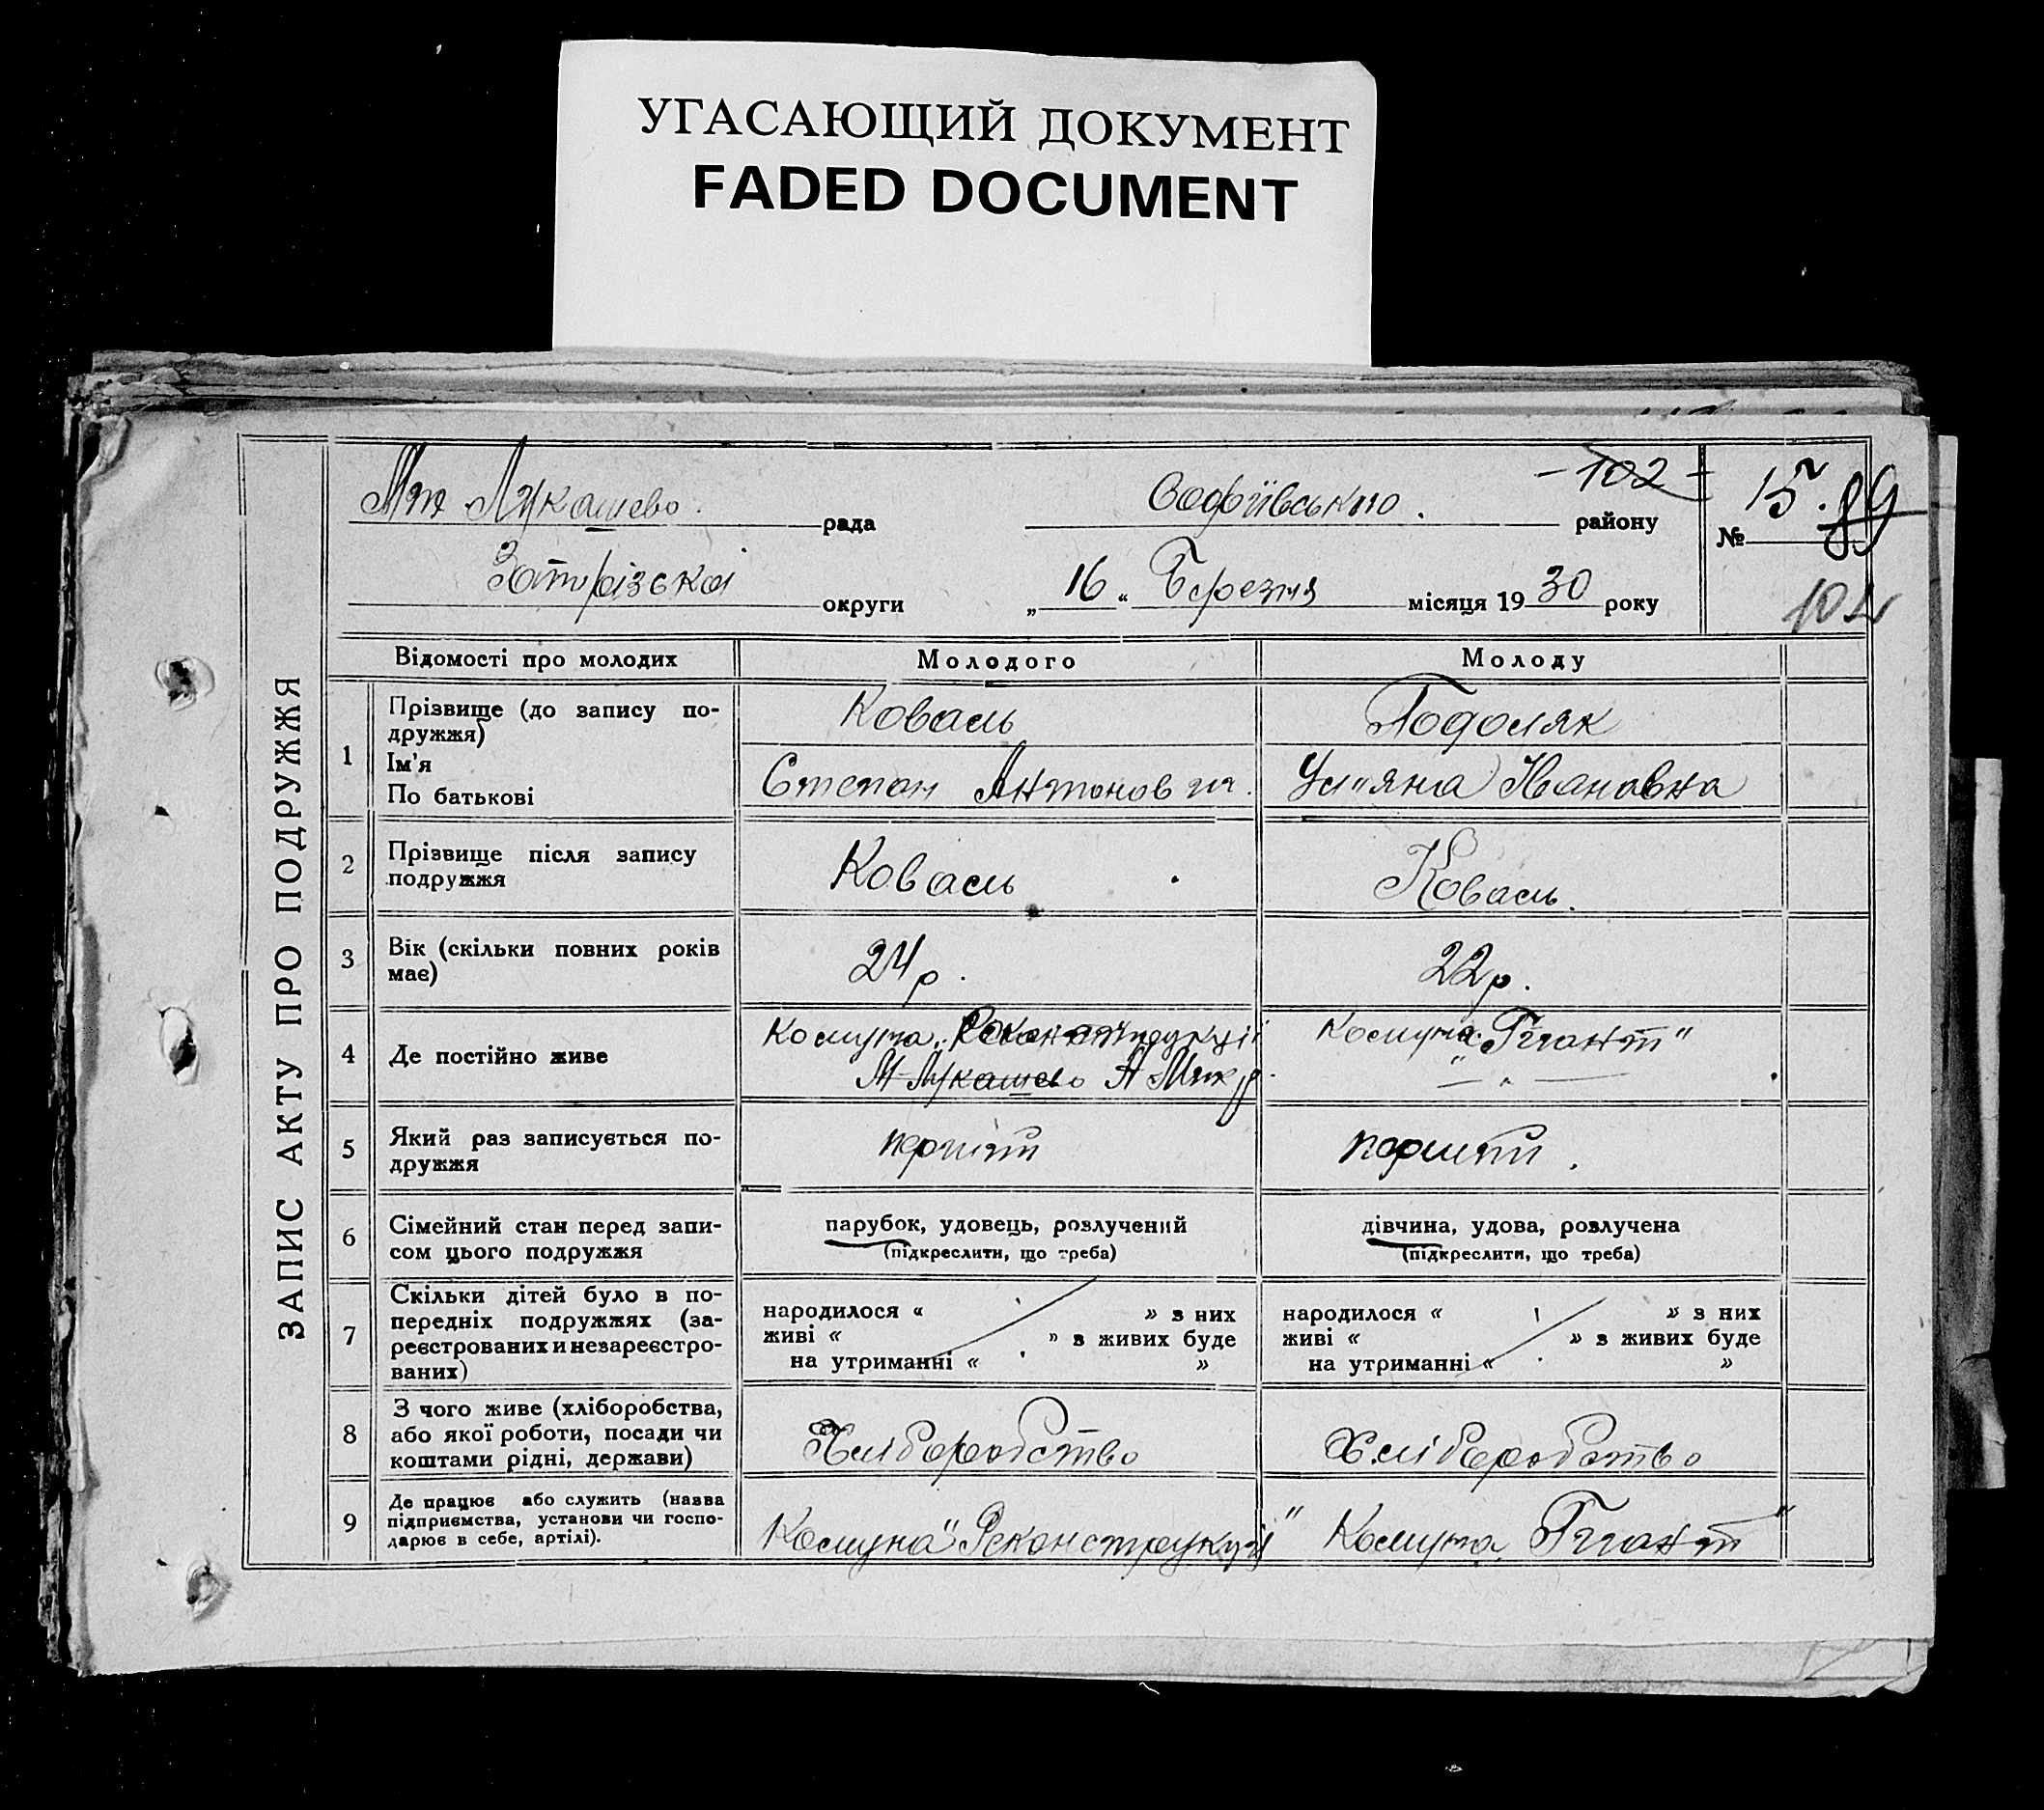 УГАСАЮЩИЙ ДОКУМЕНТ
FADED DOCUMENT
ЗАПИС АКТУ ПРО ПОДРУЖЖЯ
Лукашево рада
Софіївського району
- 102 -
№ 15. 89
округи
„ 16 “ Березня місяця 1930 року
102
Відомості про молодих Молодого Молоду
1 Прізвище (до запису по-
дружжя)
Ім'я
По батькові
Коваль
Степан Антонович
Подоляк
Ул"яна Івановна
2 Прізвище після запису
подружжя
Коваль
Коваль.
3 Вік (скільки повних років
має)
24 р.
22 р.
4 Де постійно живе
Комуна „Реконструкції"
М Лукашево
Комуна „Гігант"
— " —
5 Який раз записується по-
дружжя
перший
перший.
6 Сімейний стан перед запи-
сом цього подружжя
парубок, удовець, розлучений
(підкреслити, що треба)
дівчина, удова, розлучена
(підкреслити, що треба)
7 Скільки дітей було в по-
передніх подружжях (за-
реєстрованих и незареєстро-
ваних)
народилося « » з них
живі « » з живих буде
на утриманні « »
народилося « » з них
живі « » з живих буде
на утриманні « »
8 З чого живе (хліборобства,
або якої роботи, посади чи
коштами рідні, держави)
Хліборобство
Хліборобство
9 Де працює або служить (назва
підприємства, установи чи госпо-
дарює в себе, артілі).
Комуна "Реконструкції"
Комуна „Гігант"